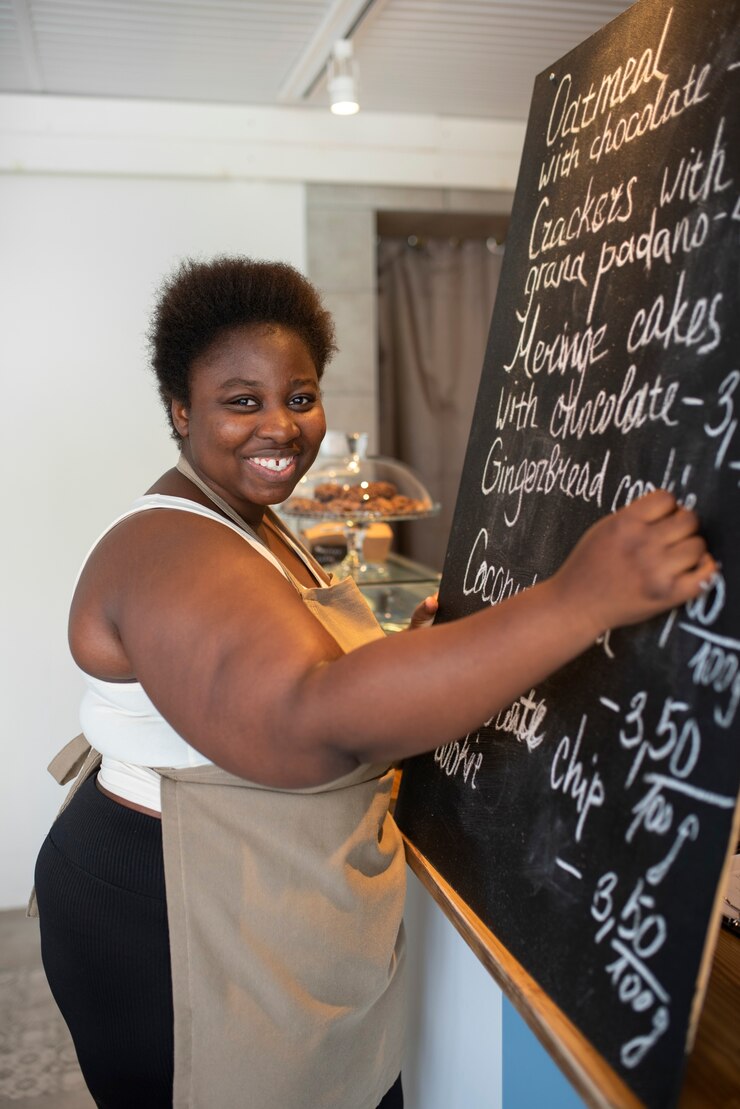 Oatmeal
with chocolate -
Crackers with
grana padano -
Meringe cakes
with chocolate - 3,
Gingerbread cookie
Coconut
100g
chip - 3,50
100g
cookie
- 3,50
100g